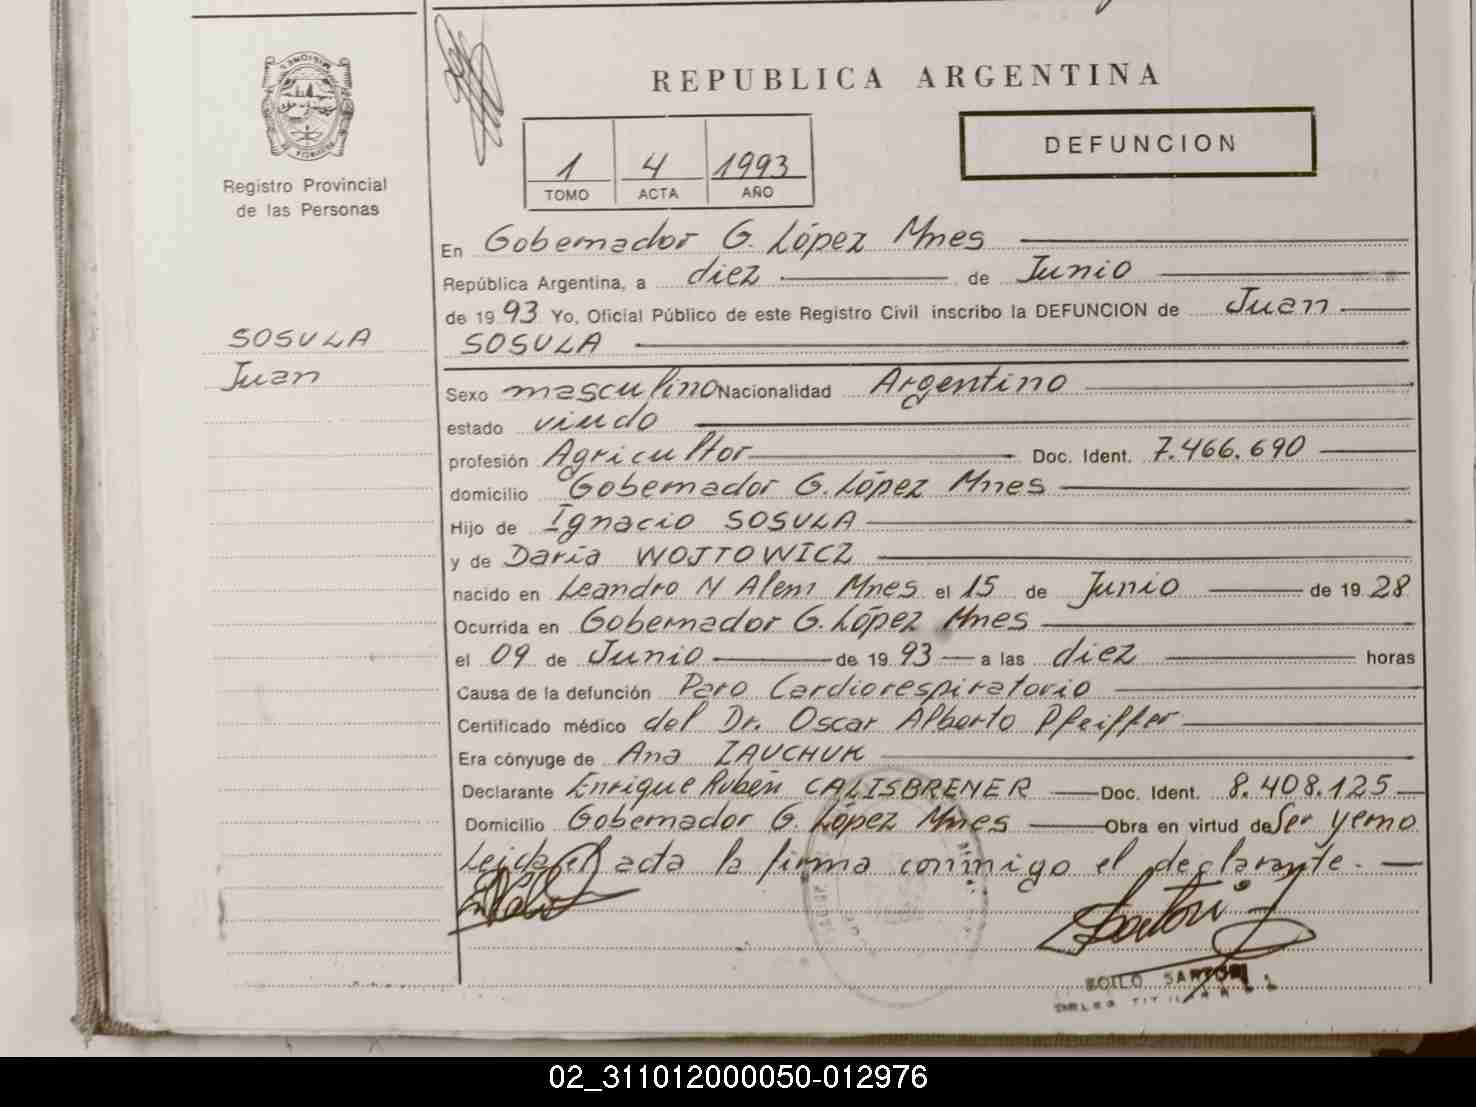 REPUBLICA ARGENTINA
MISIONES
Registro Provincial
de las Personas
1 4 1993
TOMO ACTA AÑO
DEFUNCION
SOSULA
Juan
En Gobernador G. López Mnes
República Argentina, a diez de Junio
de 1993 Yo, Oficial Público de este Registro Civil inscribo la DEFUNCION de Juan
SOSULA
Sexo masculino Nacionalidad Argentino
estado viudo
profesión Agricultor Doc. Ident. 7.466.690
domicilio Gobernador G. López Mnes
Hijo de Ignacio SOSULA
y de Daria WOJTOWICZ
nacido en Leandro N Alem Mnes el 15 de Junio de 1928
Ocurrida en Gobernador G. López Mnes
el 09 de Junio de 1993 a las diez horas
Causa de la defunción Paro Cardiorespiratorio
Certificado médico del Dr. Oscar Alberto Pfeiffer
Era cónyuge de Ana IAUCHUK
Declarante Enrique Rubén CALISBRENER Doc. Ident. 8.408.125
Domicilio Gobernador G. López Mnes Obra en virtud de Ser yerno
Leida el acta la firma conmigo el declarante.
Sartori
ZOILO SARTORI
02_311012000050-012976